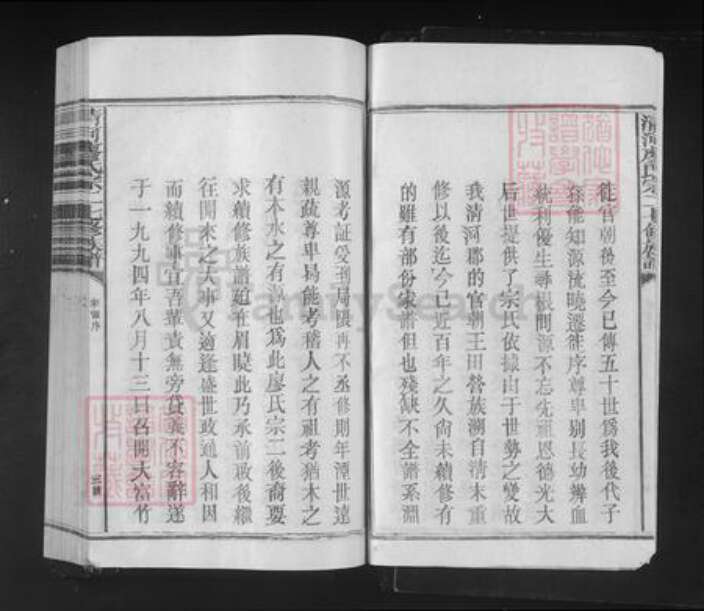 徙官朝後至今已傳五十世爲我後代子
孫能知源流曉遷徙序尊卑别長幼辨血
統利優生尋根問源不忘先祖恩德光大
后世提供了宗氏依據由于世勢之變故
我清河郡的官朝王田營族溯自清末重
修以後迄今已近百年之久尚未續修有
的雖有部份家譜但也殘缺不全譜系淵
源考証受到局限再不丞修則年湮世遠
親疏尊卑易能考稽人之有祖考猶木之
有本水之有源也爲此廖氏宗二後裔要
求續修族譜廹在眉睫此乃承前啟後繼
往開來之大事又適逢盛世政通人和因
而續修事宜吾輩責無旁貸義不容辭遂
于一九九四年八月十三日召開大富竹
清河廖氏宗二七修族譜
FamilySearch